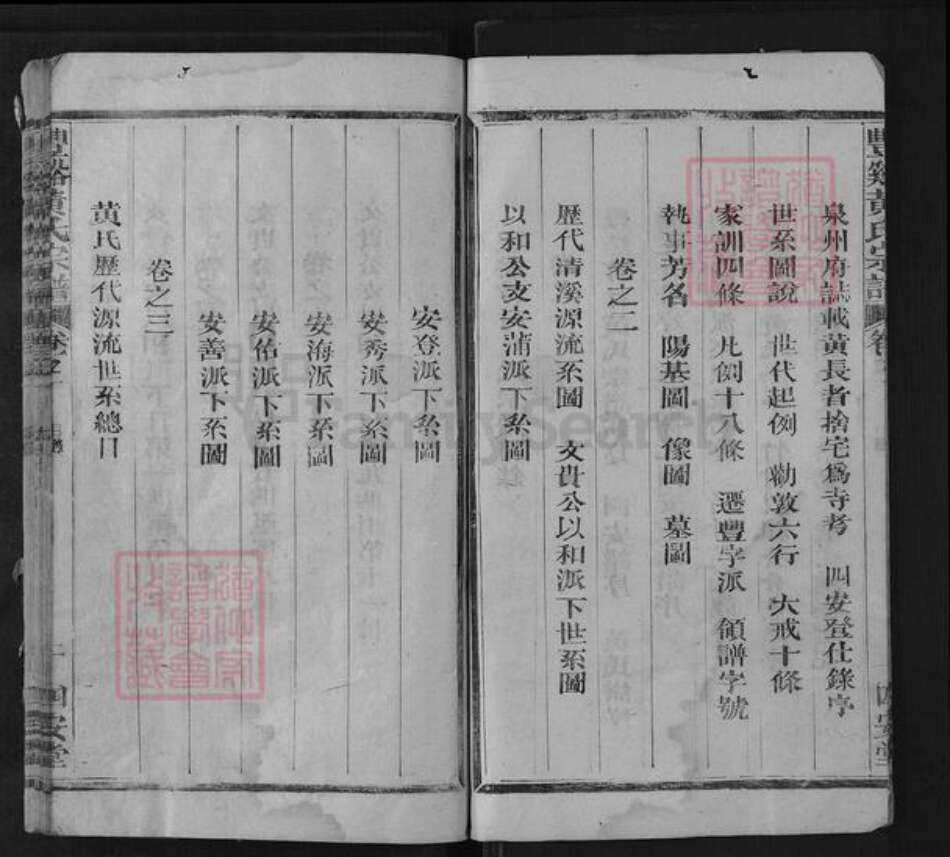 豐谿黃氏宗譜
泉州府誌載黃長者捨宅爲寺考　四安登仕錄序
世系圖說　世代起例　勸敦六行　大戒十條
家訓四條　凡例十八條　遷豐字派　領譜字號
執事芳名　陽基圖　像圖　墓圖
卷之二
歷代清溪源流系圖　文貴公以和派下世系圖
以和公支安蒲派下系圖
四安堂
安登派下系圖
安秀派下系圖
安海派下系圖
安佑派下系圖
安善派下系圖
卷之三
黃氏歷代源流世系總目
豐谿黃氏宗譜
卷之一
四安堂
FamilySearch